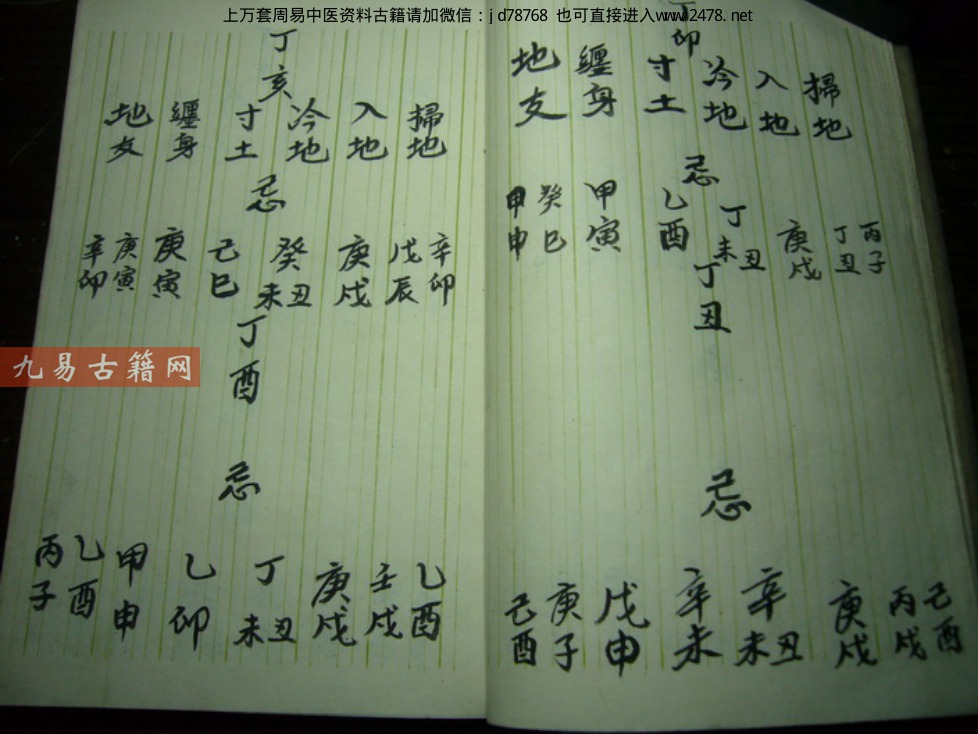 上万套周易中医资料古籍请加微信：jd78768 也可直接进入www.2478.net
丁卯
掃地
入地
冷地
寸土
纏身
地支
忌
丙子
丁丑
庚戌
丁未丑
乙酉
甲寅
癸巳
甲申
丁丑
忌
己酉
丙戌
庚戌
辛未丑
辛未
戊申
庚子
己酉
丁亥
掃地
入地
冷地
寸土
纏身
地支
忌
辛卯
戊辰
庚戌
癸未丑
己巳
庚寅
庚寅
辛卯
丁酉
忌
乙酉
壬戌
庚戌
丁未丑
乙卯
甲申
乙酉
丙子
九易古籍网